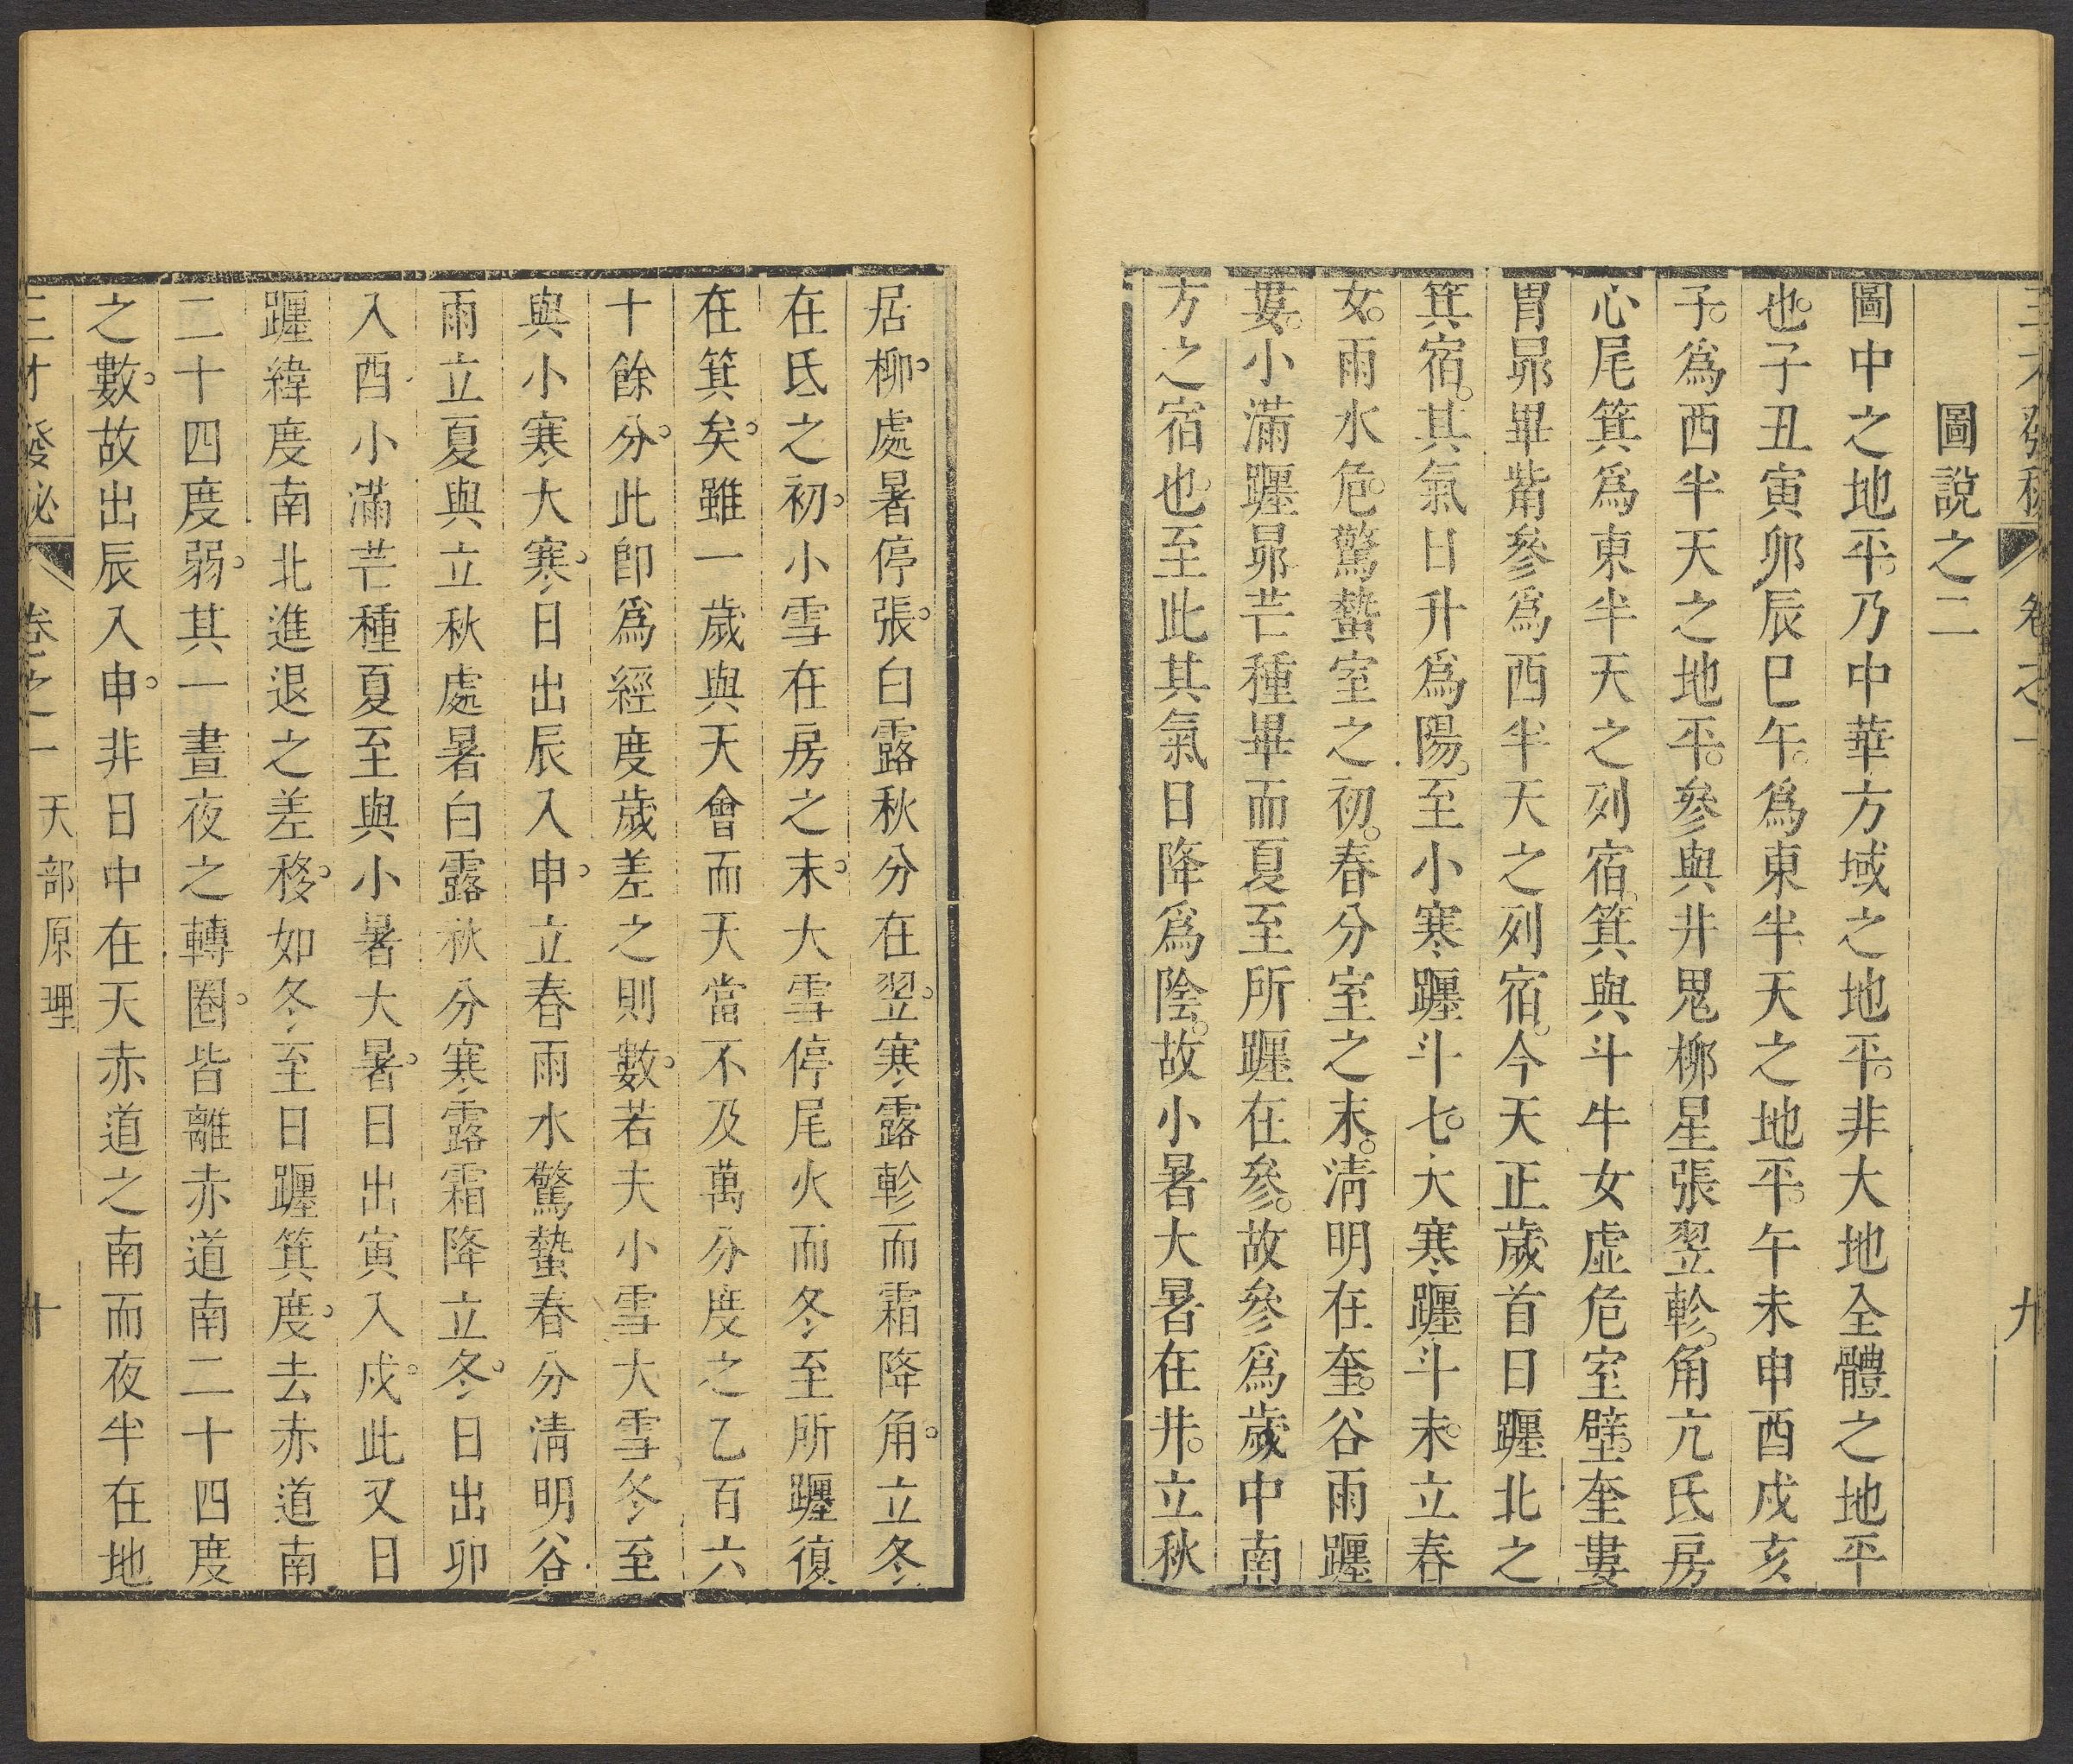 三才發秘 卷之一 九
圖說之二
圖中之地平。乃中華方域之地平。非大地全體之地平
也。子丑寅卯辰巳午。為東半天之地平。午未申酉戌亥
子。為西半天之地平。參與井鬼柳星張翌軫。角亢氐房
心尾箕為東半天之列宿。箕與斗牛女虛危室壁。奎婁
胃昴畢觜參為西半天之列宿。今天正歲首日躔北之
箕宿。其氣日升為陽。至小寒躔斗七。大寒躔斗末。立春
女。雨水危。驚蟄室之初。春分室之末。清明在奎。谷雨躔
婁。小滿躔昴芒種畢而夏至所躔在參。故參為歲中南
方之宿也。至此其氣日降為陰。故小暑大暑在井。立秋
居柳。處暑停張。白露秋分在翌。寒露軫而霜降角。立冬
在氐之初。小雪在房之末。大雪停尾火而冬至所躔復
在箕矣。雖一歲與天會而天當不及萬分度之乙百六
十餘分。此即為經度歲差之則數。若夫小雪大雪冬至
與小寒大寒。日出辰入申。立春雨水驚蟄春分清明谷
雨立夏與立秋處暑白露秋分寒露霜降立冬。日出卯
入酉小滿芒種夏至與小暑大暑。日出寅入戌。此又日
躔緯度南北進退之差移。如冬至日躔箕度。去赤道南
二十四度弱。其一晝夜之轉圈。皆離赤道南二十四度
之數。故出辰入申。非日中在天赤道之南而夜半在地
三才發秘 卷之一 天部原理 十